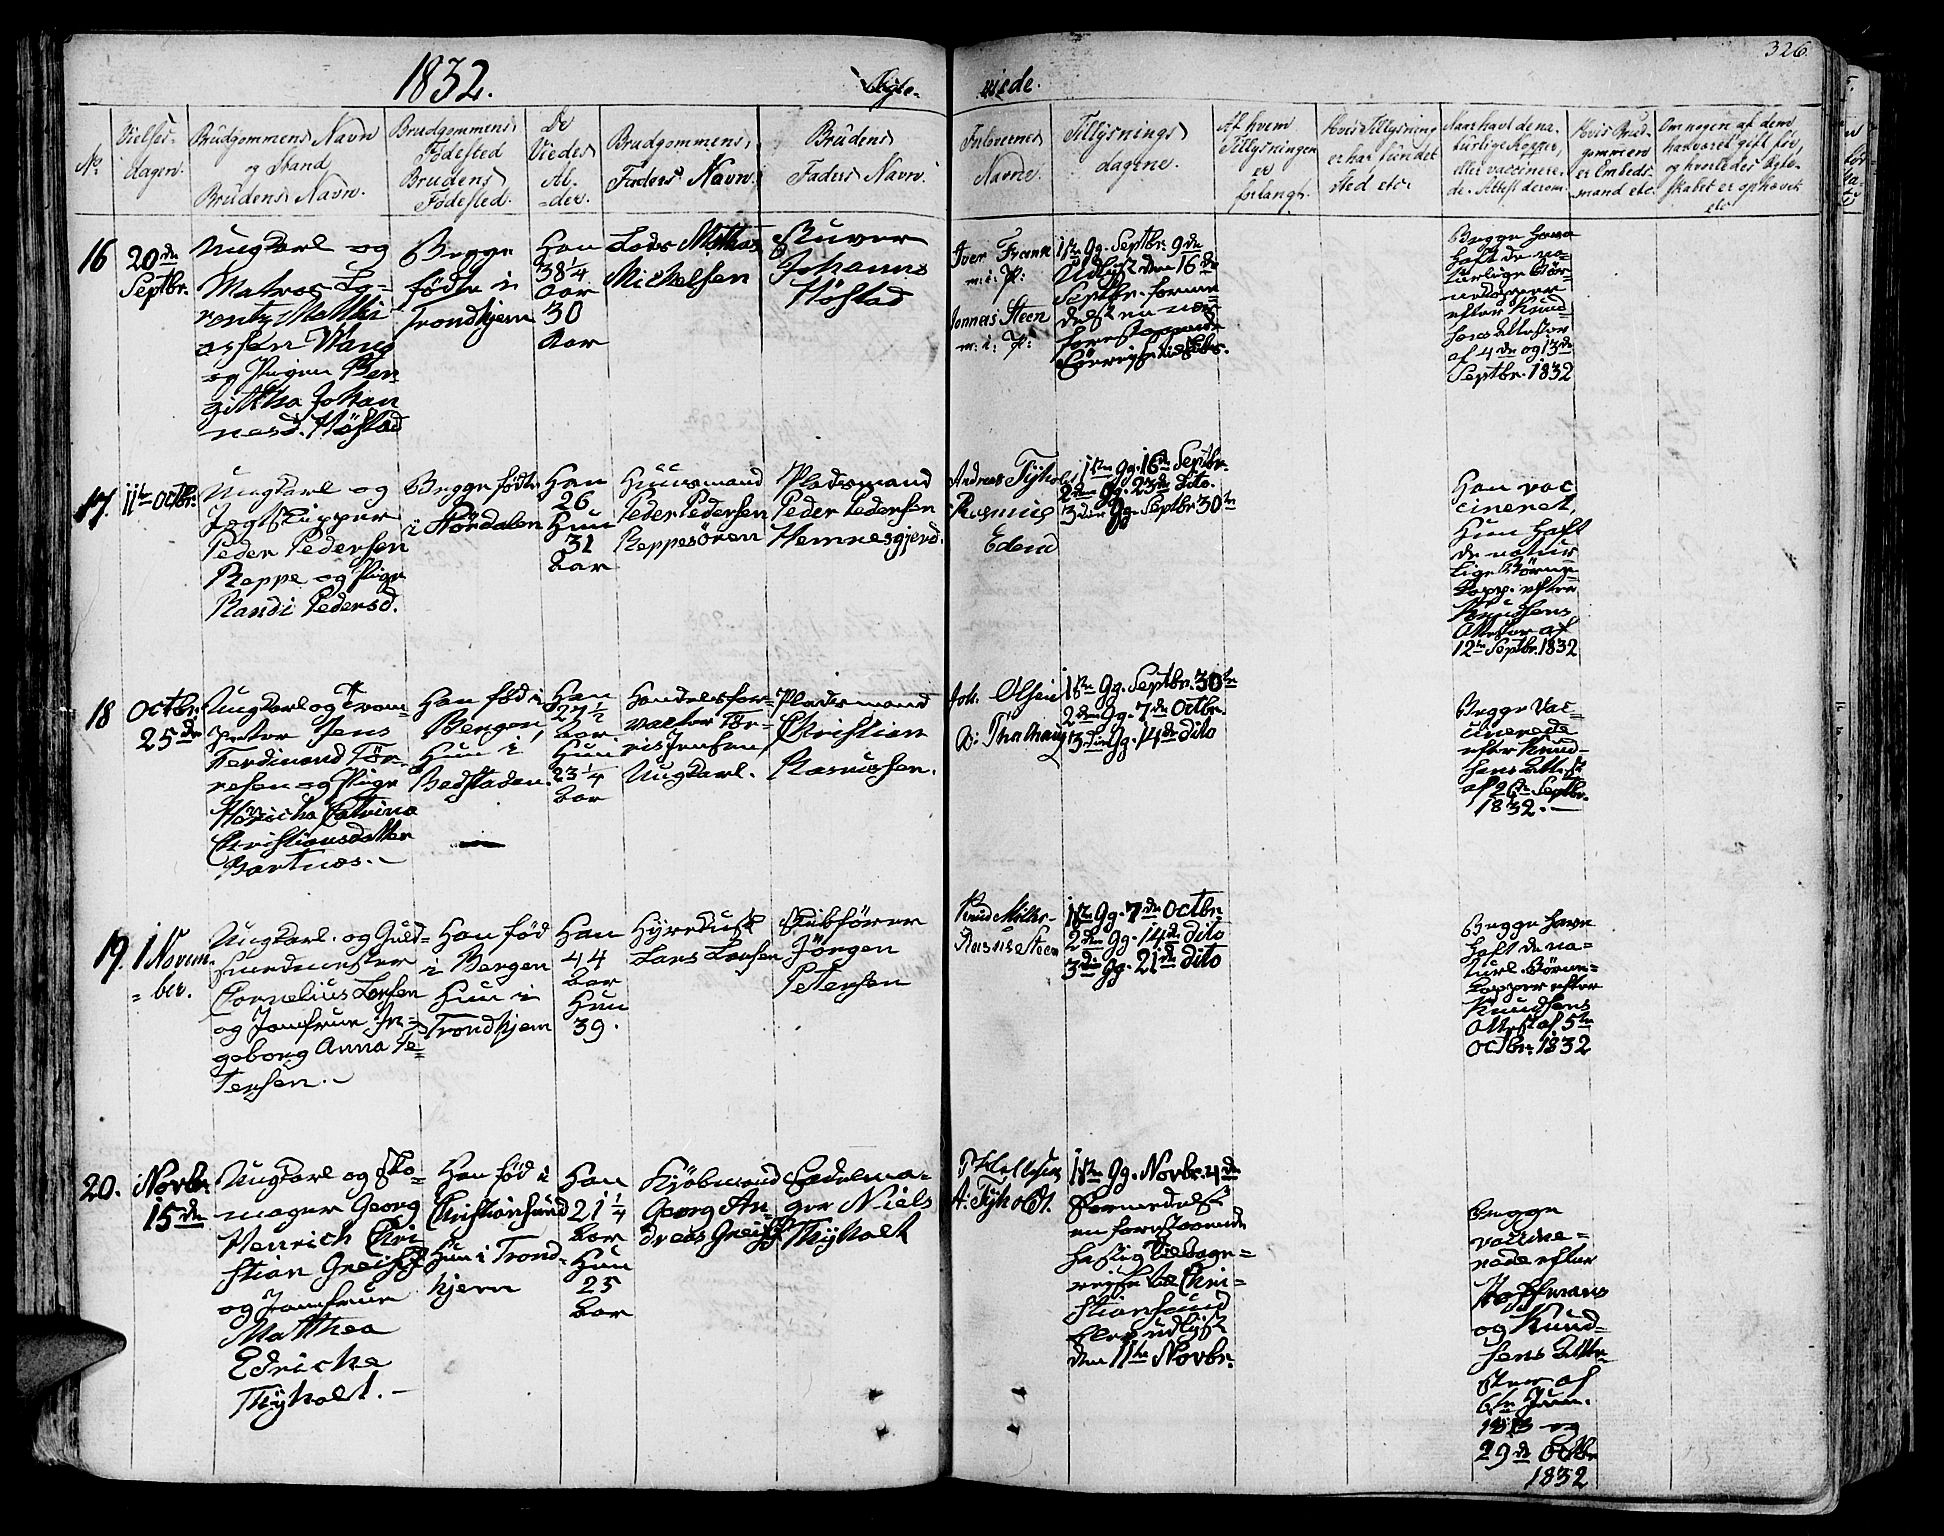 1832.
Egte-
viede.
326
No
Vielses-
dagen.
Brudgommens Navn
og Stand
Brudens Navn.
Brudgommens
Födested
Brudens
Födested.
De
Viedes
Al-
-der.
Brudgommens
Faders Navn.
Brudens
Faders Navn.
Forlovernes
Navne.
Tillysnings
dagene.
Af hvem
Tillysningen
er
forlangt.
Hvis Tillysning
er har fundet
sted etc.
Naar havt de na-
turlige Kopper,
eller vaccinere-
de. Attest derom.
Hvis Brud-
gommen
er Embeds-
mand etc.
Om nogen af dem
har været gift för,
og hvorledes Egte-
skabet er ophævet
etc
16
20de
Septbr.
Ungkarl og
Matros Lo-
rentz Matthi-
asen Wang
og Pigen Ben-
githa Johan
nesd. Höstad
Begge
födte i
Trondhjem
Han
38 1/4
Aar
30
Aar
Lods Mathias
Michelsen
Johannes
Höstad
Iver
m: i: P:
Steen
m: i: P:
1ste Gg. Septbr. 9de
Udlyst den 16de
Septbr. forme-
delst en
forestaaende
Begge have
haft de na-
turlige Bör-
nekopper
efter Knud-
sens Attester
af 4de og 13de
Septbr. 1832
17.
11te Octbr.
Ungkarl og
Jægtskipper
Peder Pedersen
Reppe og Pige
Randi Pedersd.
Begge födte
i Stördalen
Han
26
Hun
31
Aar
Huusmand
Peder Pedersen
Reppesören
Pladsmand
Peder Pedersen
Hemnesgjerd.
Andreas Tyholt
Rasmus
Edend
1ste Gg. 16de Septbr.
2den Gg. 23de dito.
3die Gg. Septbr 30te
Han vac
cineret,
Hun haft
de natur
lige Börne-
kopp. efter
Knudsens
Attester af
12te Septbr. 1832
18
Octbr.
25de
Ungkarl og Trom-
peter Jens
Ferdinand Tör-
resen og Pige
Catrina
Christiansdatter
Bartnes.-
Han föd i
Bergen,
Hun i
Bedstaden.
Han
27 1/2
Aar
Hun
23 1/4
Aar
Handelsfor-
valter Tör-
ris Jensen,
Ungkarl.
Pladsmand
Christian
Rasmussen.
Joh. Olsen
O: Thalhaug
1ste Gg. Septbr. 30te
2den Gg. 7de Octbr.
3die Gg. 14de dito
Begge vac-
cinerede
efter Knud-
sens Attest
af 26de Septbr.
1832.-
19.
1 Novem-
-ber.
Ungkarl. og Guld-
smedmester
Cornelius Larsen
og Jomfrue In-
geborg Anna Pe-
tersen.-
Han föd
i Bergen
Hun i
Trondhjem
Han
44
Aar
Hun
39.
Hyrekusk
Lars Larsen
Skibförer
Jörgen
Petersen
Knud Möller
Rasmus Steen
1ste Gg. 7de Octbr.
2den Gg. 14de dito
3die Gg. 21de dito
Begge have
haft de na-
turl. Börne-
kopper efter
Knudsens
Attest af 5te
Octbr. 1832
20.
Novbr.
15de
Ungkarl og Sko-
mager Georg
Henrich Chri-
stian Greiff
og Jomfrue
Matthea
Edricke
Thyholdt.-
Han föd i
Christiansund
Hun i Trond-
hjem
Han
21 1/4
Aar
Hun
25
Aar
Kjöbmand
Georg An-
dreas Greiff
Sadelma-
ger Niels
Thyholt
P. Kellesen
A: Tyholdt.
1ste Gg. Novbr. 4de
Formedelst
en forestaaende
hastig Tilbage-
reise til Chri-
stiansund
blev udlyst
den 11te Novbr.
Begge
vaccine-
rede efter
Hoffmans
og Knud-
sens Atte-
ster af
6te Juni.
1813 og
29de Octbr.
1832